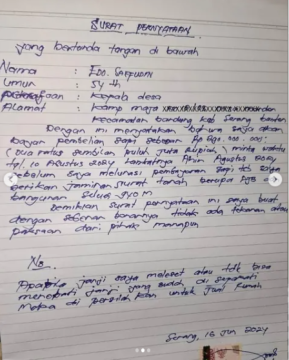 SURAT PERNYATAAN
yang bertanda tangan di bawah
Nama : EDO. SAEPUDIN
Umur : 54 th
: Kepala desa
Alamat : Kamp maja
Kecamatan bandung kab Serang banten
Dengan ini menyatakan bahwa saya akan
bayar pembelian sapi sebesar Rp
(Dua ratus sembilan puluh juta rupiah, minta waktu
tgl. 10 Agustus 2024 Akhir Agustus 2024
Sebelum saya melunasi pembayaran sapi tsb saya
berikan Jaminan surat tanah berupa AJB
bangunan
Demikian surat pernyataan ini saya buat
dengan sebenar benarnya tidak ada tekanan atau
paksaan dari pihak manapun
NB.
Apabila janji saya meleset atau tdk bisa
menepati janji yang sudah di
Maka di untuk Jual Rumah
Serang, 18 Jun 2024